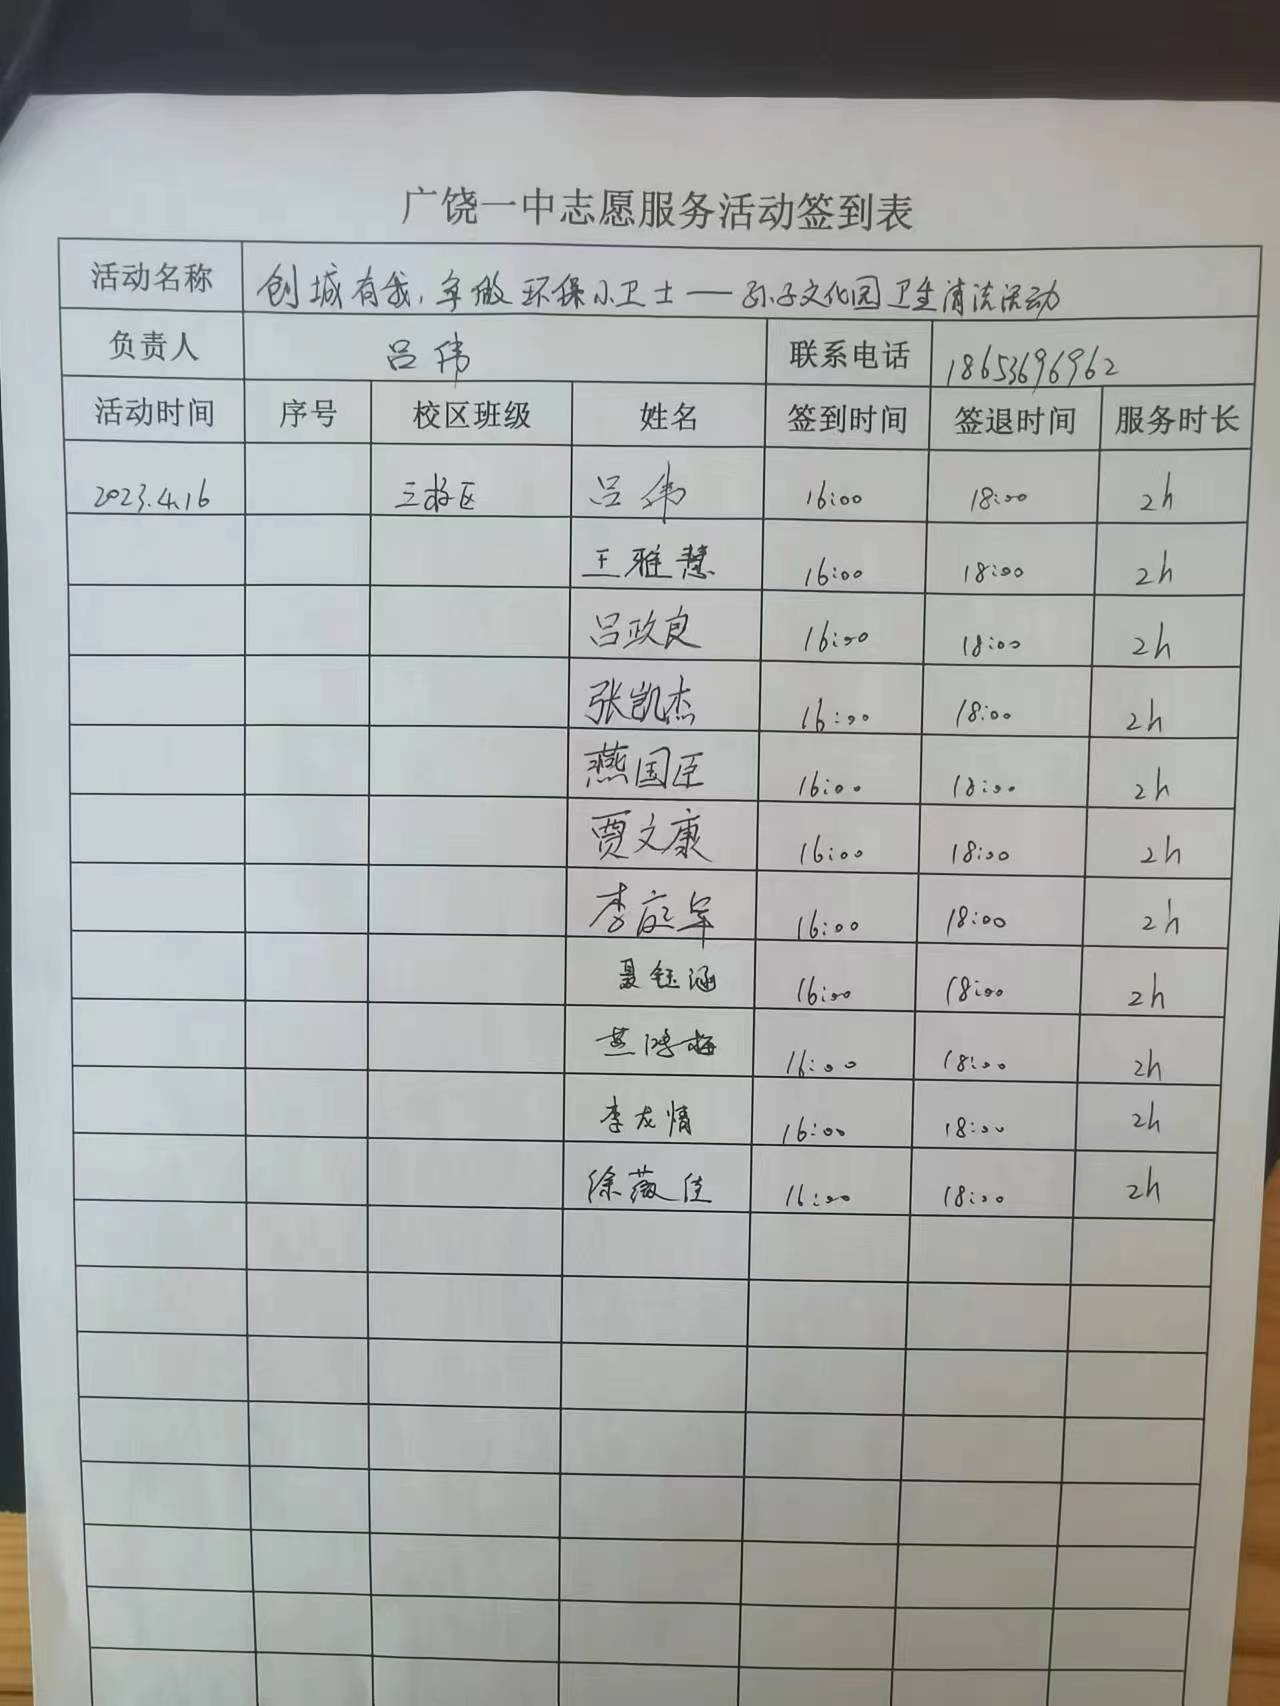 广饶一中志愿服务活动签到表
活动名称 创城有我,争做环保小卫士——孙子文化园卫生清洁活动
负责人 吕伟 联系电话 18653696962
活动时间 序号 校区班级 姓名 签到时间 签退时间 服务时长
2023.4.16 三校区 吕伟 16:00 18:00 2h
王雅慧 16:00 18:00 2h
吕政良 16:00 18:00 2h
张凯杰 16:00 18:00 2h
燕国臣 16:00 18:00 2h
贾文康 16:00 18:00 2h
李庭军 16:00 18:00 2h
聂钰涵 16:00 18:00 2h
燕鸿梅 16:00 18:00 2h
李友情 16:00 18:00 2h
徐薇佳 16:00 18:00 2h